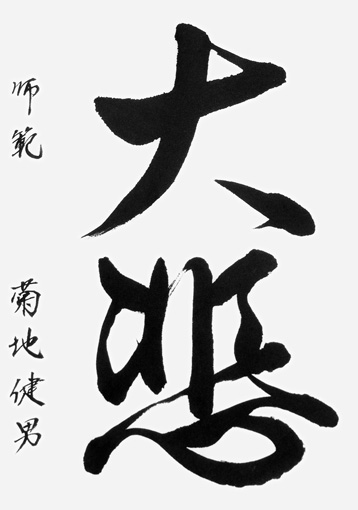 大悲
師範 菊地健男